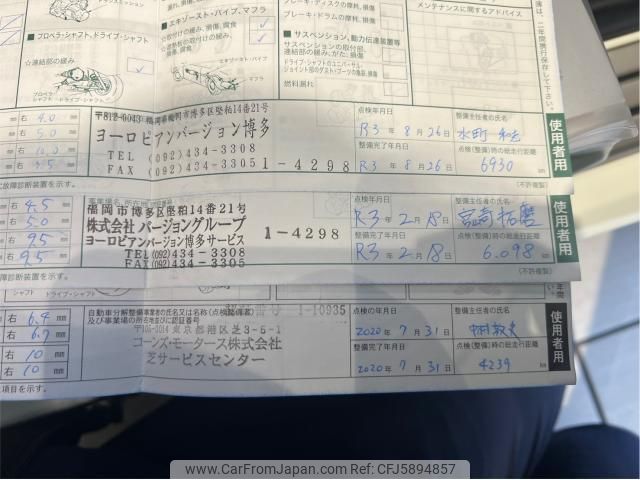 ■エキゾースト・パイプ、マフラ
☆取付けの緩み、損傷、腐食
■プロペラ・シャフト、ドライブ・シャフト
☆連結部の緩み
プロペラ・シャフト
ドライブ・シャフト
エキゾースト・パイプ
マフラ
ブレーキ・ディスクの摩耗、損傷
ブレーキ・ドラムの摩耗、損傷
■サスペンション、動力伝達装置等
サスペンションの取付部、連結部の緩み、がた、損傷
ドライブ・シャフトのユニバーサル・ジョイント部のダスト・ブーツの亀裂、損傷
燃料漏れ
メンテナンスに関するアドバイス
右 4.0 mm
右 5.0 mm
右 10.0 mm
〒812-0043 福岡市博多区堅粕14番21号
ヨーロピアンバージョン博多
TEL (092)434-3308
FAX (092)434-3305
1-4298
点検年月日
R3 年 8 月 26 日
整備完了年月日
R3 年 8 月 26 日
整備主任者の氏名
点検(整備)時の総走行距離
6930 km
使用者用
(不許複製)
故障診断装置を示す。
右 4.5 mm
右 5.0 mm
右 9.5 mm
右 9.5 mm
福岡市博多区堅粕14番21号
株式会社バージョングループ
ヨーロピアンバージョン博多サービス
TEL(092)434-3308
FAX(092)434-3305
1-4298
点検年月日
R3 年 2 月 18 日
整備完了年月日
R3 年 2 月 18 日
整備主任者の氏名
宮崎拓磨
点検(整備)時の総走行距離
6.098 km
使用者用
(不許複製)
故障診断装置を示す。
右 6.4 mm
右 6.7 mm
右 10 mm
右 10 mm
自動車分解整備事業者の氏名又は名称(点検整備者)及び事業場の所在地並びに認証番号
1-10935
東京都港区芝3-6-1
コーンズ・モータース株式会社
芝サービスセンター
点検の年月日
2020 年 7 月 31 日
整備完了年月日
2020 年 7 月 31 日
整備主任者の氏名
点検(整備)時の総走行距離
4239 km
使用者用
項目を示す。
www.CarFromJapan.com - CFJ5894857